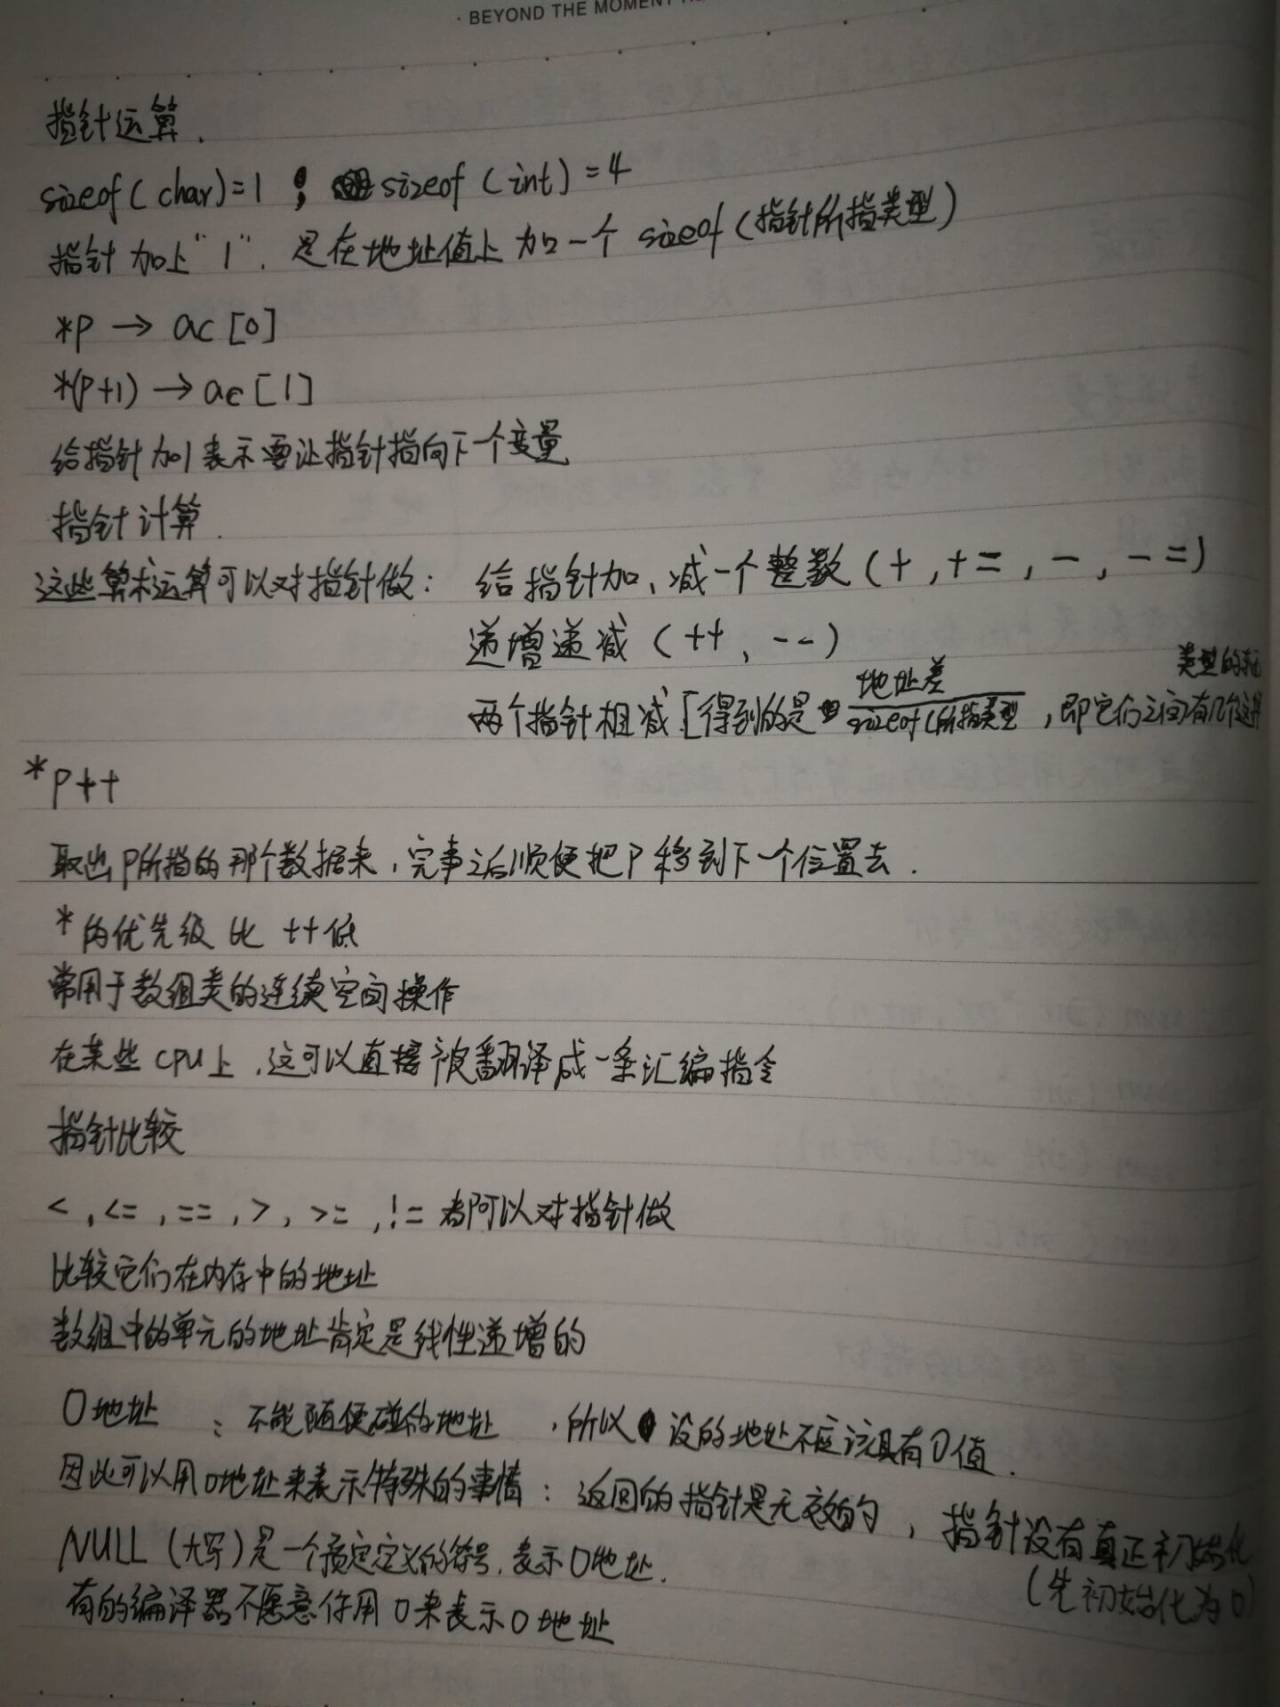 · BEYOND THE MOMENT
指针运算.
sizeof(char)=1 ; sizeof(int)=4
指针加上“1”. 是在地址值上加一个sizeof(指针所指类型)
*p → ac[0]
*(p+1) → ac[1]
给指针加1表示要让指针指向下一个变量
指针计算.
这些算术运算可以对指针做: 给指针加、减一个整数(+,+=,-,-=)
递增递减(++,--)
两个指针相减[得到的是 地址差/sizeof(所指类型 ,即它们之间有几个这样
类型的
*p++
取出p所指的那个数据来,完事之后顺便把p移到下一个位置去.
*的优先级比++低
常用于数组类的连续空间操作
在某些cpu上,这可以直接被翻译成一条汇编指令
指针比较
<,<=,==,>,>=,!= 都可以对指针做
比较它们在内存中的地址
数组中的单元的地址肯定是线性递增的
0地址 : 不能随便碰的地址 ,所以 设的地址不应该具有0值.
因此可以用0地址来表示特殊的事情: 返回的指针是无效的, 指针没有真正初始化
(先初始化为0)
NULL(大写)是一个预定定义的符号,表示0地址.
有的编译器不愿意你用0来表示0地址